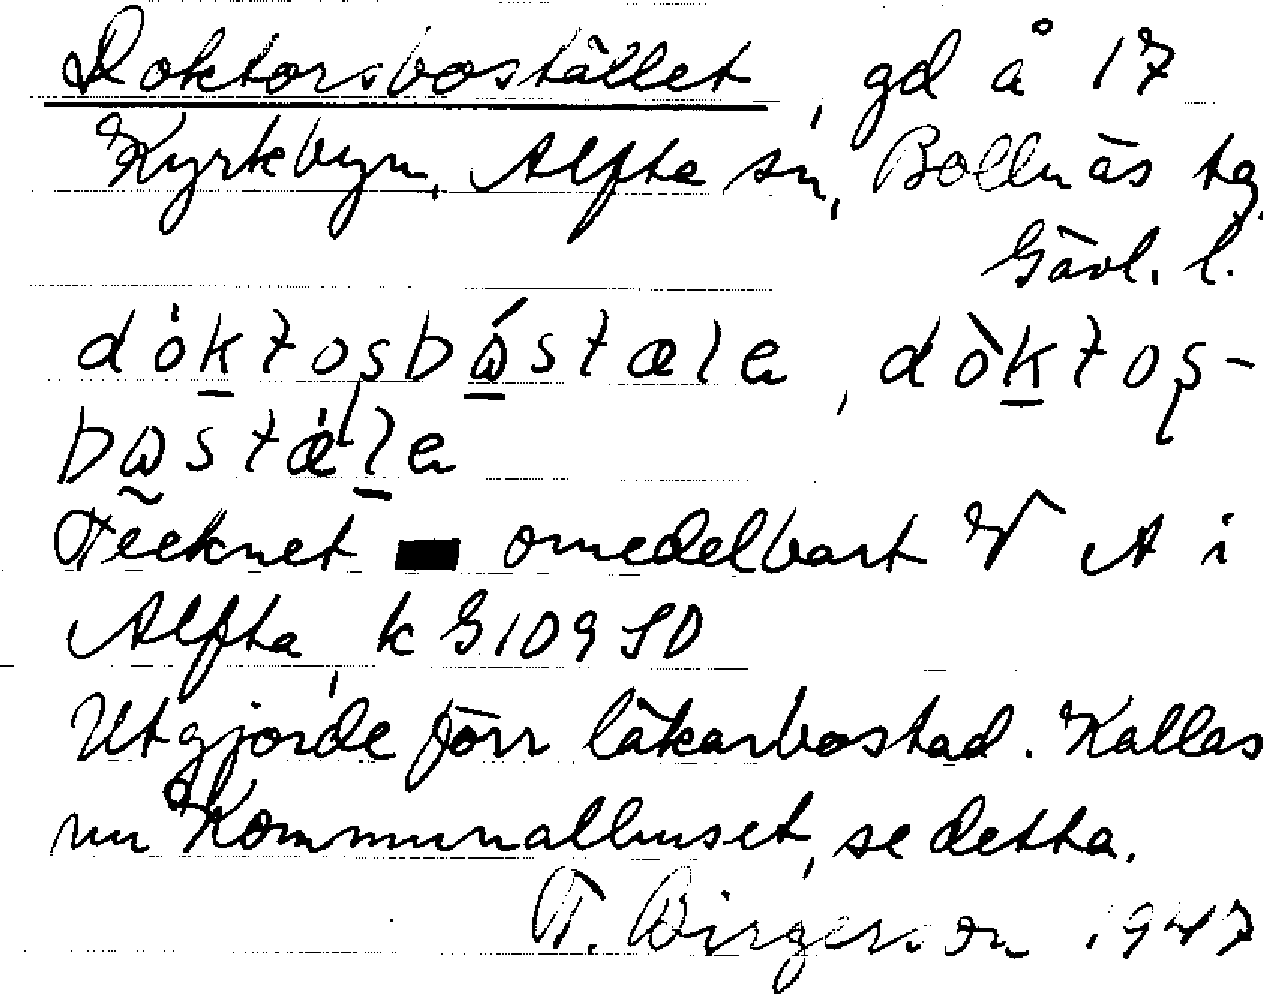 Doktorsbostället, gd å 17
Kyrkbyn, Alfta sn, Bollnäs tg
Gävl. l.
dòktosbωstæle, dòktos-
bωstæle
Tecknet ▬ omedelbart V A i
Alfta, k G 109 SO
Utgjorde förr läkarbostad. Kallas
nu Kommunalhuset, se detta.
T. Birgerson 1947